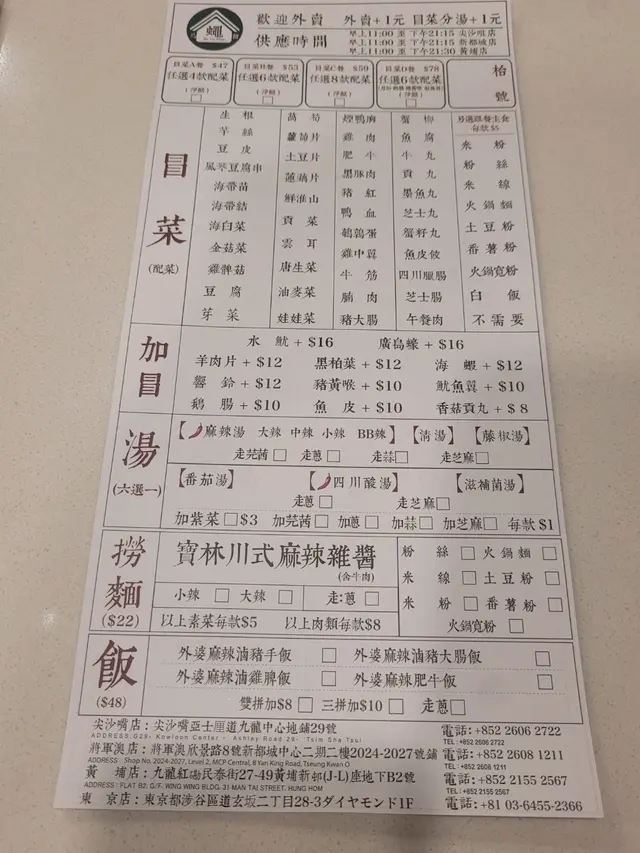 歡迎外賣 外賣+1元 冒菜分湯+1元
供應時間
早上11:00 至 下午21:15 尖沙咀店
早上11:00 至 下午21:15 新都城店
早上11:00 至 下午21:30 黃埔店
冒菜A餐 $47 冒菜B餐 $53 冒菜C餐 $59 冒菜D餐 $78
任選4款配菜 任選6款配菜 任選8款配菜 任選6款配菜
(淨餸) (淨餸) (淨餸) (淨餸)
枱號
冒菜
(配菜)
生根 萵筍 煙鴨胸 蟹柳 另選跟餐主食
每款$5
芋絲 蘿蔔片 雞肉 魚腐 米粉
豆皮 土豆片 肥牛 牛丸 粉絲
風琴豆腐串 蓮藕片 黑豚肉 貢丸 米線
海帶苗 鮮淮山 豬紅 墨魚丸 火鍋麵
海帶結 貢菜 鴨血 芝士丸 土豆粉
海白菜 雲耳 鵪鶉蛋 蟹籽丸 番薯粉
金菇菜 唐生菜 雞中翼 魚皮餃 火鍋寬粉
雞髀菇 油麥菜 牛筋 四川臘腸 白飯
豆腐 娃娃菜 腩肉 芝士腸 不需要
芽菜 豬大腸 午餐肉
加冒
水魷+$16 廣島蠔+$16
羊肉片+$12 黑柏葉+$12 海蝦+$12
響鈴+$12 豬黃喉+$10 魷魚翼+$10
鵝腸+$10 魚皮+$10 香菇貢丸+$8
湯
(六選一)
【麻辣湯 大辣 中辣 小辣 BB辣】【清湯】【藤椒湯】
走芫茜 走蔥 走蒜 走芝麻
【番茄湯】【四川酸湯】【滋補菌湯】
走蔥 走芝麻
加紫菜 $3 加芫茜 加蔥 加蒜 加芝麻 每款$1
撈麵
($22)
寶林川式麻辣雜醬
(含牛肉)
小辣 大辣 走:蔥
以上素菜每款$5 以上肉類每款$8
粉絲 火鍋麵
米線 土豆粉
米粉 番薯粉
火鍋寬粉
飯
($48)
外婆麻辣滷豬手飯 外婆麻辣滷豬大腸飯
外婆麻辣滷雞髀飯 外婆麻辣肥牛飯
雙拼加$8 三拼加$10 走蔥
尖沙嘴店：尖沙嘴亞士厘道九龍中心地鋪29號 電話:+852 2606 2722
ADDRESS:G29, Kowloon Center, Ashley Road 29, Tsim Sha Tsui TEL:+852 2606 2722
將軍澳店：將軍澳欣景路8號新都城中心二期二樓2024-2027號鋪 電話:+852 2608 1211
ADDRESS: Shop No. 2024-2027, Level 2, MCP Central, 8 Yan King Road, Tseung Kwan O TEL:+852 2608 1211
黃埔店：九龍紅磡民泰街27-49黃埔新邨(J-L)座地下B2號 電話:+852 2155 2567
ADDRESS: FLAT B2, G/F, WING WING BLDG, 31 MAN TAI STREET, HUNG HOM TEL:+852 2155 2567
東京店：東京都渋谷區道玄坂二丁目28-3ダイヤモンド1F 電話:+81 03-6455-2366